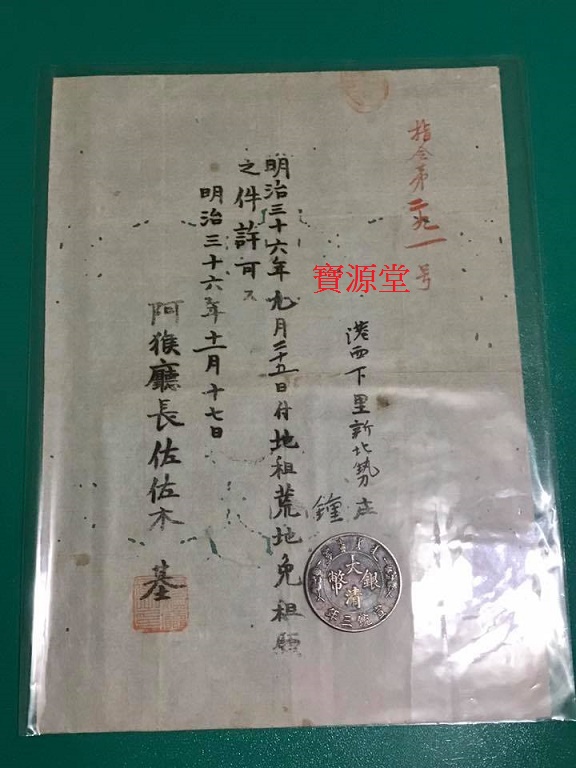 指令第二九一号
寶源堂
港西下里新北勢庄
鍾
明治三十六年九月二十五日付地租荒地免租願
之件許可ス
明治三十六年十一月十七日
阿猴廳長佐佐木基
大清銀幣
宣統三年